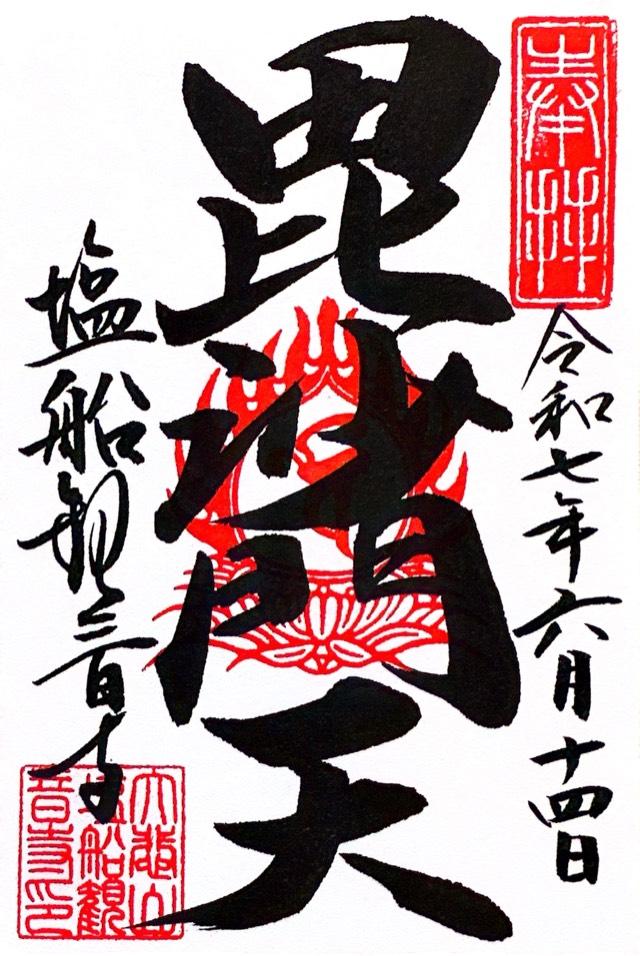 奉拝
令和七年六月十四日
毘沙門天
塩船観音寺
大悲山
塩船観
音寺印